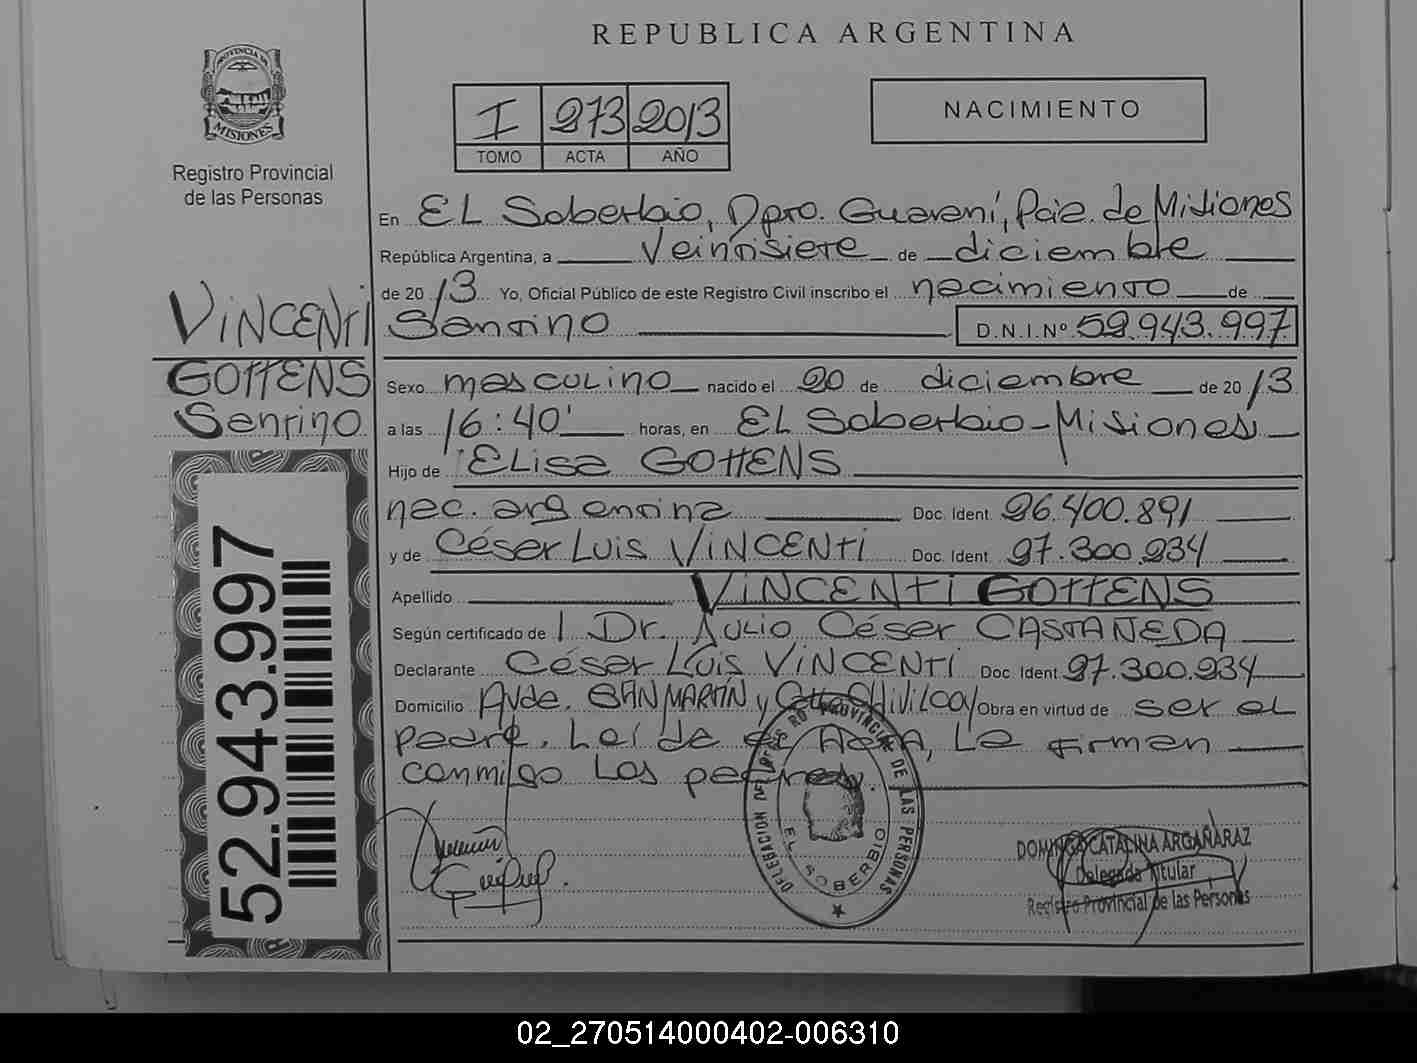 REPUBLICA ARGENTINA
PROVINCIA DE
MISIONES
Registro Provincial
de las Personas
I 273 2013
TOMO ACTA AÑO
NACIMIENTO
En EL Soberbio, Dpto. Guaraní, Pcia. de Misiones
República Argentina, a Veintisiete de diciembre
de 20 13 Yo, Oficial Público de este Registro Civil inscribo el nacimiento de
Santino D.N.I.Nº 52.943.997
VINCENTI
GOTTENS
Santino
52.943.997
Sexo masculino nacido el 20 de diciembre de 20 13
a las 16:40' horas, en EL Soberbio - Misiones
Hijo de Elisa GOTTENS
nac. argentina Doc. Ident. 26.400.891
y de César Luis VINCENTI Doc. Ident 27.300.234
Apellido VINCENTI GOTTENS
Según certificado de l Dr. Julio César CASTAÑEDA
Declarante César Luis VINCENTI Doc. Ident 27.300.234
Domicilio Avda. SAN MARTÍN y CHIVILCOY Obra en virtud de ser el
padre. Leída el Acta, La firman
conmigo Los padres.
DELEGACION DEL REGISTRO PROVINCIAL DE LAS PERSONAS
EL SOBERBIO
DOMINGA CATALINA ARGAÑARAZ
Delegada Titular
Registro Provincial de las Personas
02_270514000402-006310